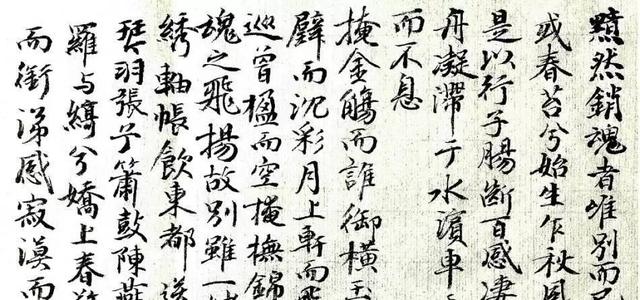 黯然銷魂者唯別而已
或春苔兮始生乍秋風
是以行子腸斷百感凄
舟凝滯于水濱車
而不息
掩金觴而誰御橫玉
壁而沉彩月上軒而飛
巡曾楹而空掩撫錦
魂之飛揚故別雖一
綉軸帳飲東都送
琴羽張兮簫鼓陳燕
羅与綺兮嬌上春
而銜涕感寂漠而